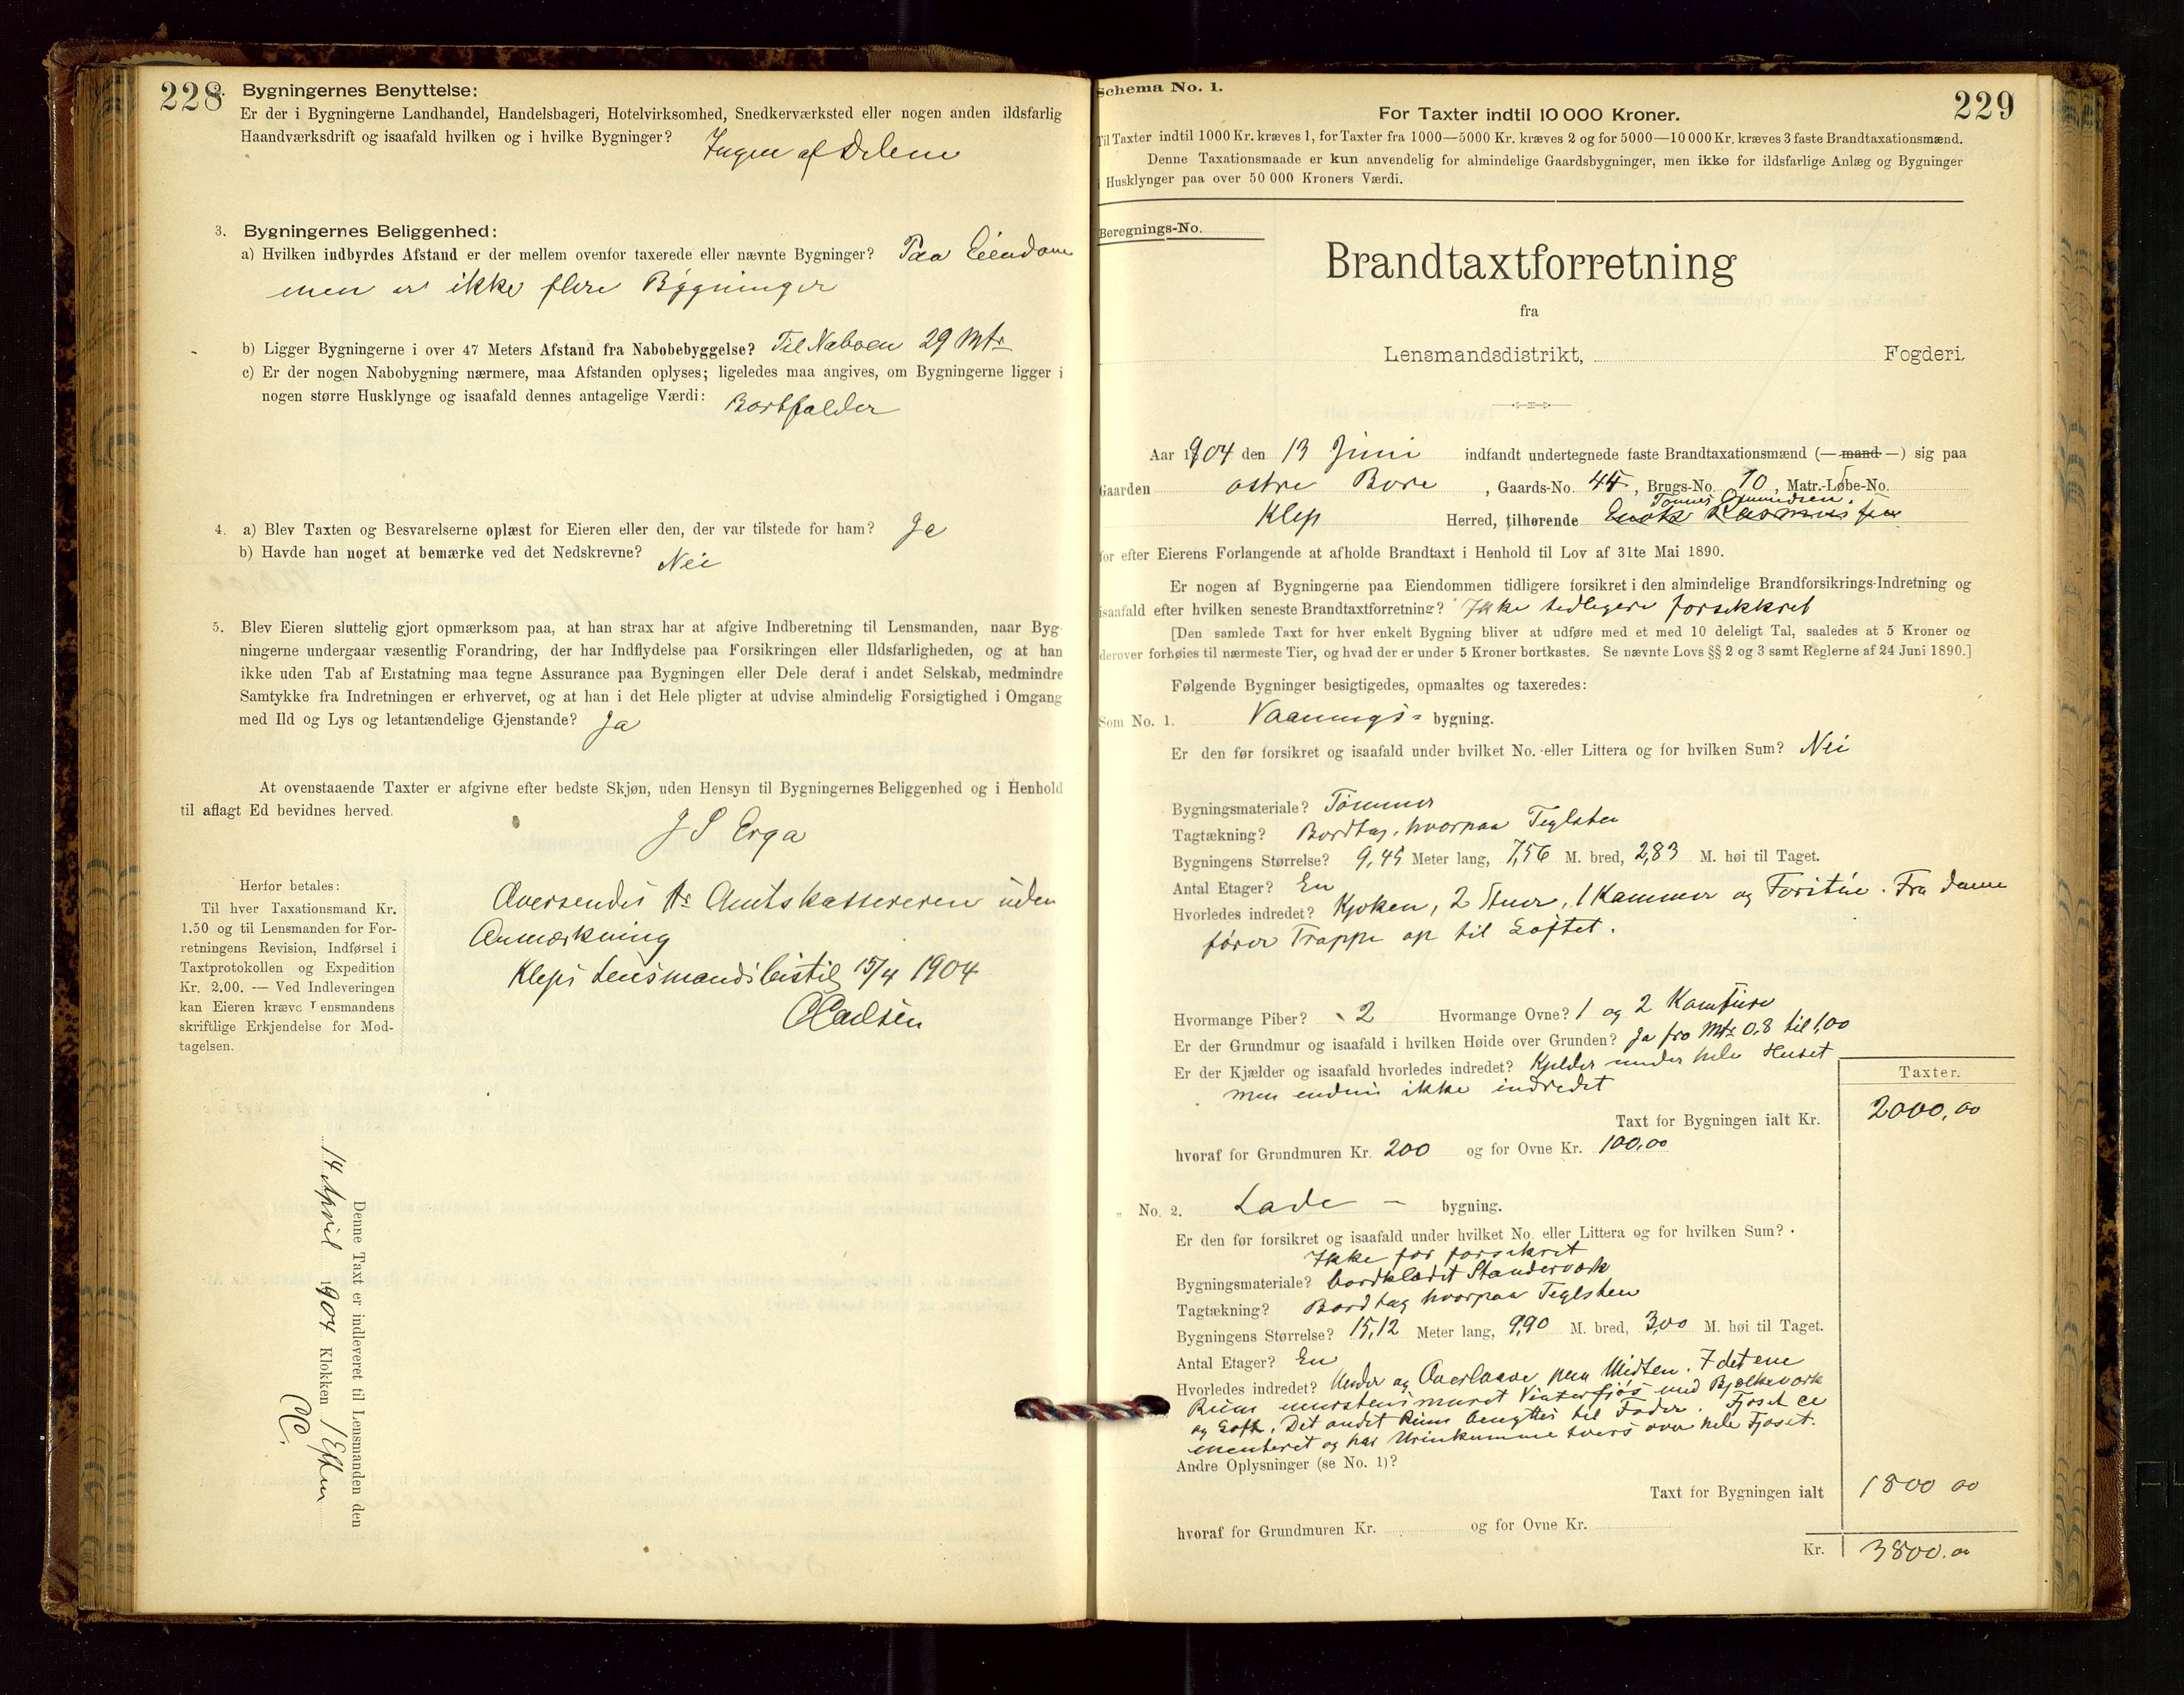 228
2. Bygningernes Benyttelse:
Er der i Bygningerne Landhandel, Handelsbageri, Hotelvirksomhed, Snedkerværksted eller nogen anden ildsfarlig
Haandværksdrift og isaafald hvilken og i hvilke Bygninger? Ingen af Delene
3. Bygningernes Beliggenhed:
a) Hvilken indbyrdes Afstand er der mellem ovenfor taxerede eller nævnte Bygninger? Paa Eiendom
men er ikke flere Bygninger
b) Ligger Bygningerne i over 47 Meters Afstand fra Nabobebyggelse? Til Naboen 29 Mtr
c) Er der nogen Nabobygning nærmere, maa Afstanden oplyses; ligeledes maa angives, om Bygningerne ligger i
nogen større Husklynge og isaafald dennes antagelige Værdi: Bortfalder
4. a) Blev Taxten og Besvarelserne oplæst for Eieren eller den, der var tilstede for ham? Ja
b) Havde han noget at bemærke ved det Nedskrevne? Nei
5. Blev Eieren sluttelig gjort opmærksom paa, at han strax har at afgive Indberetning til Lensmanden, naar Byg-
ningerne undergaar væsentlig Forandring, der har Indflydelse paa Forsikringen eller Ildsfarligheden, og at han
ikke uden Tab af Erstatning maa tegne Assurance paa Bygningen eller Dele deraf i andet Selskab, medmindre
Samtykke fra Indretningen er erhvervet, og at han i det Hele pligter at udvise almindelig Forsigtighed i Omgang
med Ild og Lys og letantændelige Gjenstande? Ja
At ovenstaaende Taxter er afgivne efter bedste Skjøn, uden Hensyn til Bygningernes Beliggenhed og i Henhold
til aflagt Ed bevidnes herved.
J S Erga
Herfor betales:
Til hver Taxationsmand Kr.
1.50 og til Lensmanden for For-
retningens Revision, Indførsel i
Taxtprotokollen og Expedition
Kr. 2.00. — Ved Indleveringen
kan Eieren kræve Lensmandens
skriftlige Erkjendelse for Mod-
tagelsen.
Oversendes Hr Amtskassereren uden
Anmærkning
Kleps Lensmandsbestil 15/4 1904
Denne Taxt er indleveret til Lensmanden den
14 April 1904 Klokken 1 Efterm
229
Schema No. 1.
For Taxter indtil 10 000 Kroner.
Til Taxter indtil 1000 Kr. kræves 1, for Taxter fra 1000—5000 Kr. kræves 2 og for 5000—10 000 Kr. kræves 3 faste Brandtaxationsmænd.
Denne Taxationsmaade er kun anvendelig for almindelige Gaardsbygninger, men ikke for ildsfarlige Anlæg og Bygninger
i Husklynger paa over 50 000 Kroners Værdi.
Beregnings-No.
Brandtaxtforretning
fra
Lensmandsdistrikt, Fogderi.
Aar 1904 den 13 Juni indfandt undertegnede faste Brandtaxationsmænd (— mand —) sig paa
Gaarden østre Bore, Gaards-No. 44, Brugs-No. 10, Matr.-Løbe-No.
Tønnes Omundsen.
Klep Herred, tilhørende Enok Rasmussen
for efter Eierens Forlangende at afholde Brandtaxt i Henhold til Lov af 31te Mai 1890.
Er nogen af Bygningerne paa Eiendommen tidligere forsikret i den almindelige Brandforsikrings-Indretning og
isaafald efter hvilken seneste Brandtaxtforretning? Ikke tidligere forsikkret
[Den samlede Taxt for hver enkelt Bygning bliver at udføre med et med 10 deleligt Tal, saaledes at 5 Kroner og
derover forhøies til nærmeste Tier, og hvad der er under 5 Kroner bortkastes. Se nævnte Lovs §§ 2 og 3 samt Reglerne af 24 Juni 1890.]
Følgende Bygninger besigtigedes, opmaaltes og taxeredes:
Som No. 1. Vaanings- bygning.
Er den før forsikret og isaafald under hvilket No. eller Littera og for hvilken Sum? Nei
Bygningsmateriale? Tømmer
Tagtækning? Bordtag, hvorpaa Teglsten
Bygningens Størrelse? 9,45 Meter lang, 7,56 M. bred, 2,83 M. høi til Taget.
Antal Etager? En
Hvorledes indredet? Kjøken, 2 Stuer, 1 Kammer og Forstue. Fra denne
fører Trappe op til Loftet.
Hvormange Piber? 2 Hvormange Ovne? 1 og 2 Komfure
Er der Grundmur og isaafald i hvilken Høide over Grunden? Ja fra Mtr 0,8 til 1,00
Er der Kjælder og isaafald hvorledes indredet? Kjelder under hele Huset
men endnu ikke indredet
Taxter.
Taxt for Bygningen ialt Kr. 2000,00
hvoraf for Grundmuren Kr. 200 og for Ovne Kr. 100,00
" No. 2. Lade - bygning.
Er den før forsikret og isaafald under hvilket No. eller Littera og for hvilken Sum?
Ikke før forsikret
Bygningsmateriale? bordklædt Standerværk
Tagtækning? Bordtag hvorpaa Teglsten
Bygningens Størrelse? 15,12 Meter lang, 9,90 M. bred, 3,00 M. høi til Taget.
Antal Etager? En
Hvorledes indredet? Under og Overlaave paa Midten. I det ene
Rum murstensmuret Vinterfjøs med Bjelkeværk
og Loft. Det andet Rum benyttes til Foder. Fjøset ce
menteret og har Urinkumme tvers over hele Fjøset.
Andre Oplysninger (se No. 1)?
Taxt for Bygningen ialt 1800 00
hvoraf for Grundmuren Kr. og for Ovne Kr.
Kr. 3800.00